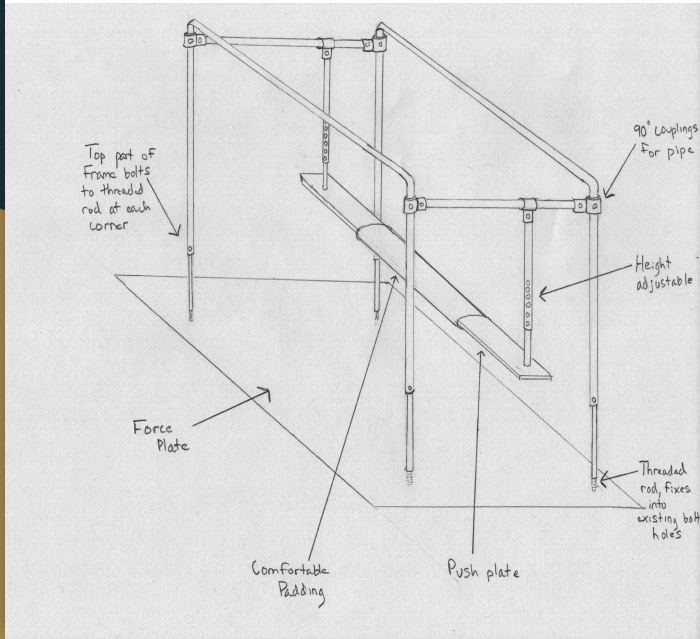 Top part of
Frame bolts
to threaded
rod at each
corner
90° couplings
for pipe
Height
adjustable
Force
Plate
Threaded
rod, fixes
into
existing bolt
holes
Comfortable
Padding
Push plate